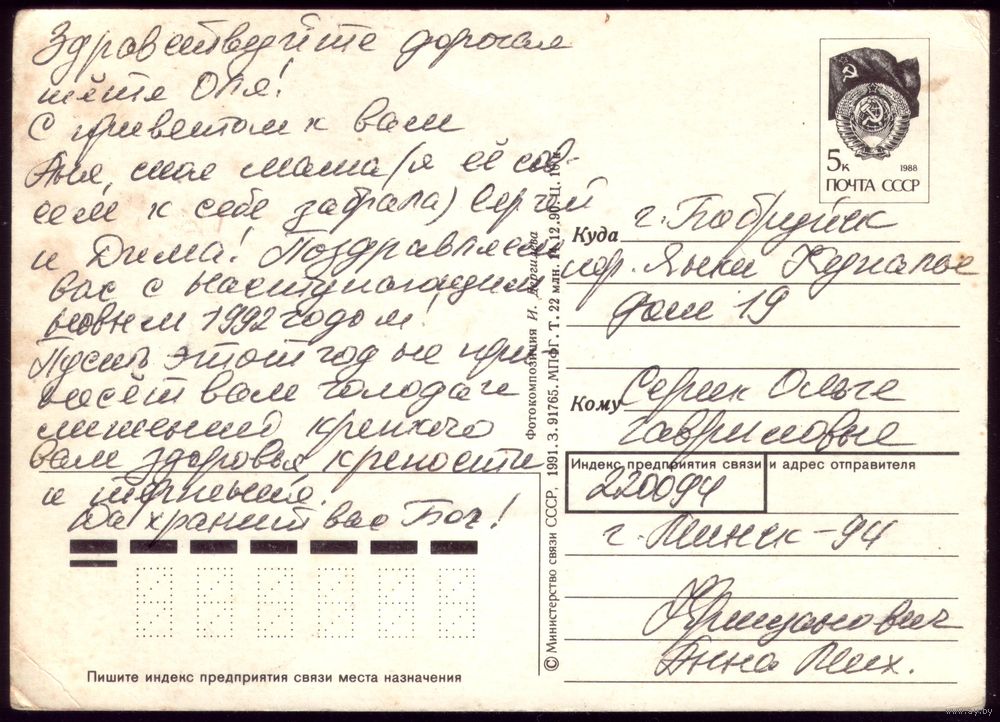 Здравствуйте дорогая
тётя Оля!
С приветом к вам
Аня, моя мама (я её сов-
сем к себе забрала) Сергей
и Дима! Поздравляем
вас с наступающим
новым 1992 годом!
Пусть этот год не при-
несёт вам голода и
лишений крепкого
вам здоровья крепости
и терпения.
Да хранит вас Бог!
Пишите индекс предприятия связи места назначения
© Министерство связи СССР, 1991. З. 91765. МПФГ. Т. 22 млн. 14.12.90. Ц. 10 к.
Фотокомпозиция И. Дергилёва
5 к
1988
ПОЧТА СССР
Куда г. Бобруйск
ул. Янки Купалы
дом 19
Кому Серик Ольге
Гавриловне
Индекс предприятия связи и адрес отправителя
220094
г. Минск-94
Анна Мих.
www.ay.by